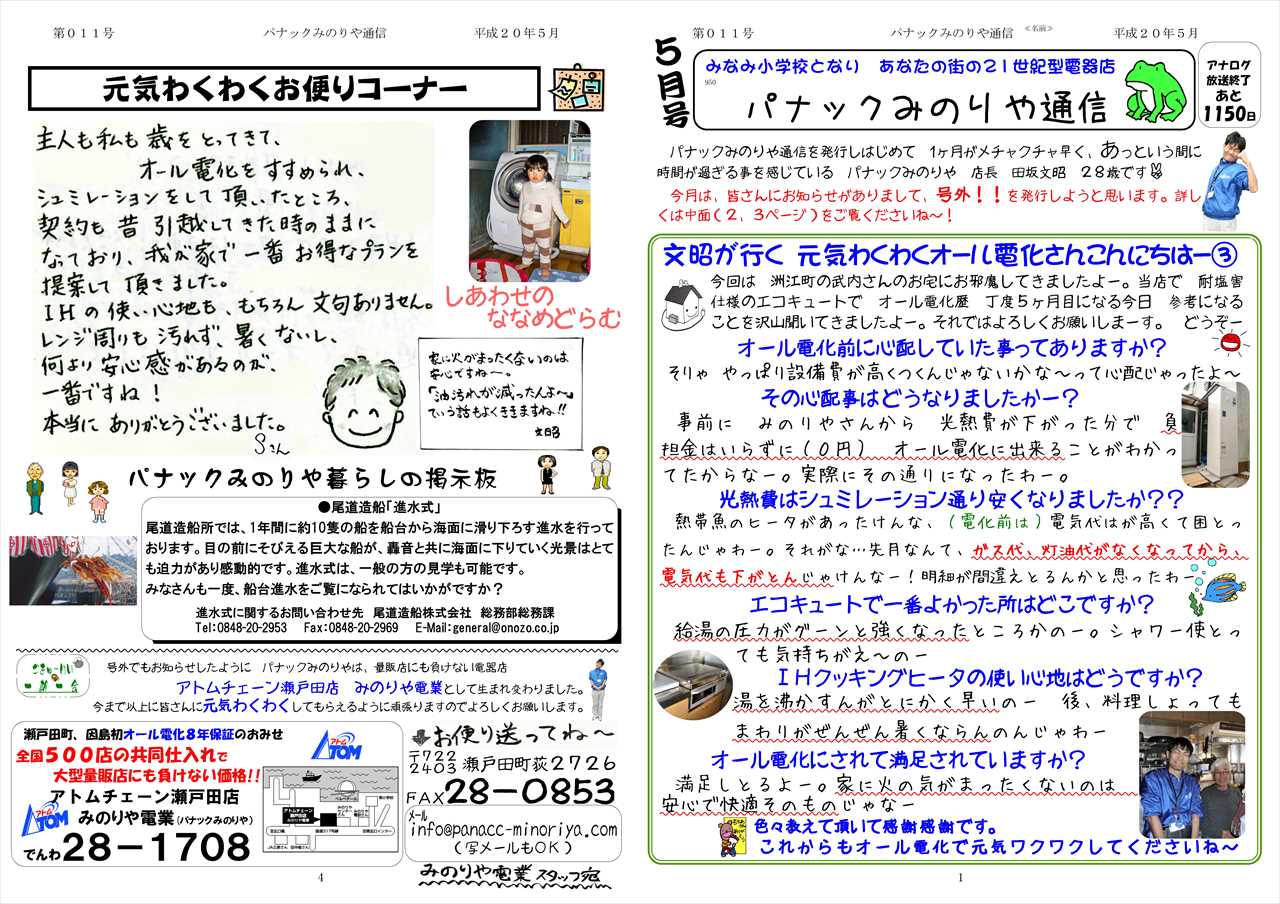 第０１１号 パナックみのりや通信 平成２０年５月
元気わくわくお便りコーナー
主人も私も歳をとってきて、
オール電化をすすめられ、
シュミレーションをして頂いたところ、
契約も昔引越してきた時のままに
なっており、我が家で一番お得なプランを
提案して頂きました。
ＩＨの使い心地も、もちろん文句ありません。
レンジ周りも汚れず、暑くないし、
何より安心感があるのが、
一番ですね！
本当にありがとうございました。
Sさん
しあわせの
ななめどらむ
家に火がまったくないのは
安心ですねー。
「油汚れが減ったんよ〜」
ていう話もよくききますね!!
文昭
パナックみのりや暮らしの掲示板
●尾道造船「進水式」
尾道造船所では、1年間に約10隻の船を船台から海面に滑り下ろす進水を行って
おります。目の前にそびえる巨大な船が、轟音と共に海面に下りていく光景はとて
も迫力があり感動的です。進水式は、一般の方の見学も可能です。
みなさんも一度、船台進水をご覧になられてはいかがですか？
進水式に関するお問い合わせ先 尾道造船株式会社 総務部総務課
Tel:0848-20-2953 Fax:0848-20-2969 E-Mail:general@onozo.co.jp
号外でもお知らせしたように パナックみのりやは、量販店にも負けない電器店
アトムチェーン瀬戸田店 みのりや電業として生まれ変わりました。
今まで以上に皆さんに元気わくわくしてもらえるように頑張りますのでよろしくお願いします。
瀬戸田町、因島初オール電化８年保証のおみせ
全国５００店の共同仕入れで
大型量販店にも負けない価格!!
アトムチェーン瀬戸田店
みのりや電業(パナックみのりや)
でんわ28－1708
アトム
ATOM
アトム
ATOM
お便り送ってね〜
〒722
2403 瀬戸田町荻2726
FAX28－0853
メール
info@panacc-minoriya.com
(写メールもOK)
みのりや電業 スタッフ宛
4
第０１１号 パナックみのりや通信 ≪名前≫ 平成２０年５月
５月号
みなみ小学校となり あなたの街の２１世紀型電器店
950
パナックみのりや通信
アナログ
放送終了
あと
1150日
パナックみのりや通信を発行しはじめて １ヶ月がメチャクチャ早く、あっという間に
時間が過ぎる事を感じている パナックみのりや 店長 田坂文昭 ２８歳です
今月は、皆さんにお知らせがありまして、号外！！を発行しようと思います。詳し
くは中面（２、３ページ）をご覧くださいね〜！
文昭が行く 元気わくわくオール電化さんこんにちはー③
今回は 洲江町の武内さんのお宅にお邪魔してきましたよー。当店で 耐塩害
仕様のエコキュートで オール電化歴 丁度５ヶ月目になる今日 参考になる
ことを沢山聞いてきましたよー。それではよろしくお願いしまーす。 どうぞー
オール電化前に心配していた事ってありますか？
そりゃ やっぱり設備費が高くつくんじゃないかな〜って心配じゃったよ〜
その心配事はどうなりましたかー？
事前に みのりやさんから 光熱費が下がった分で 負
担金はいらずに（０円） オール電化に出来ることがわかっ
てたからなー。実際にその通りになったわー。
光熱費はシュミレーション通り安くなりましたか？？
熱帯魚のヒータがあったけんな、（電化前は）電気代はが高くて困とっ
たんじゃわー。それがな…先月なんて、ガス代、灯油代がなくなってから、
電気代も下がとんじゃけんなー！明細が間違えとるんかと思ったわー
エコキュートで一番よかった所はどこですか？
給湯の圧力がグーンと強くなったところかのー。シャワー使とっ
ても気持ちがえ〜のー
ＩＨクッキングヒータの使い心地はどうですか？
湯を沸かすんがとにかく早いのー 後、料理しよっても
まわりがぜんぜん暑くならんのんじゃわー
オール電化にされて満足されていますか？
満足しとるよー。家に火の気がまったくないのは
安心で快適そのものじゃなー
色々教えて頂いて感謝感謝です。
これからもオール電化で元気ワクワクしてくださいね〜
1